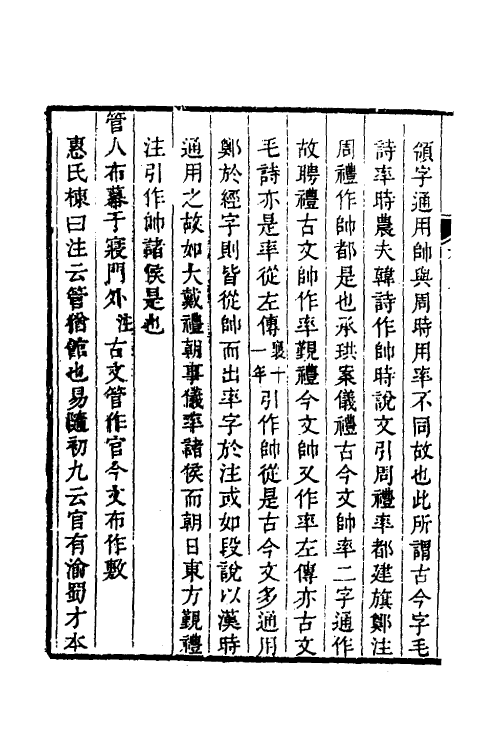 領字通用帥與周時用率不同故也此所謂古今字毛
詩率時農夫韓詩作帥時說文引周禮率都建旗鄭注
周禮作帥都是也承珙案儀禮古今文帥率二字通作
故聘禮古文帥作率覲禮今文帥又作率左傳亦古文
毛詩亦是率從左傳襄十一年引作帥從是古今文多通用
鄭於經字則皆從帥而出率字於注或如段說以漢時
通用之故如大戴禮朝事儀率諸侯而朝日東方覲禮
注引作帥諸侯是也
管人布幕于寢門外注古文管作官今文布作敷
惠氏棟曰注云管猶館也易隨初九云官有渝蜀才本